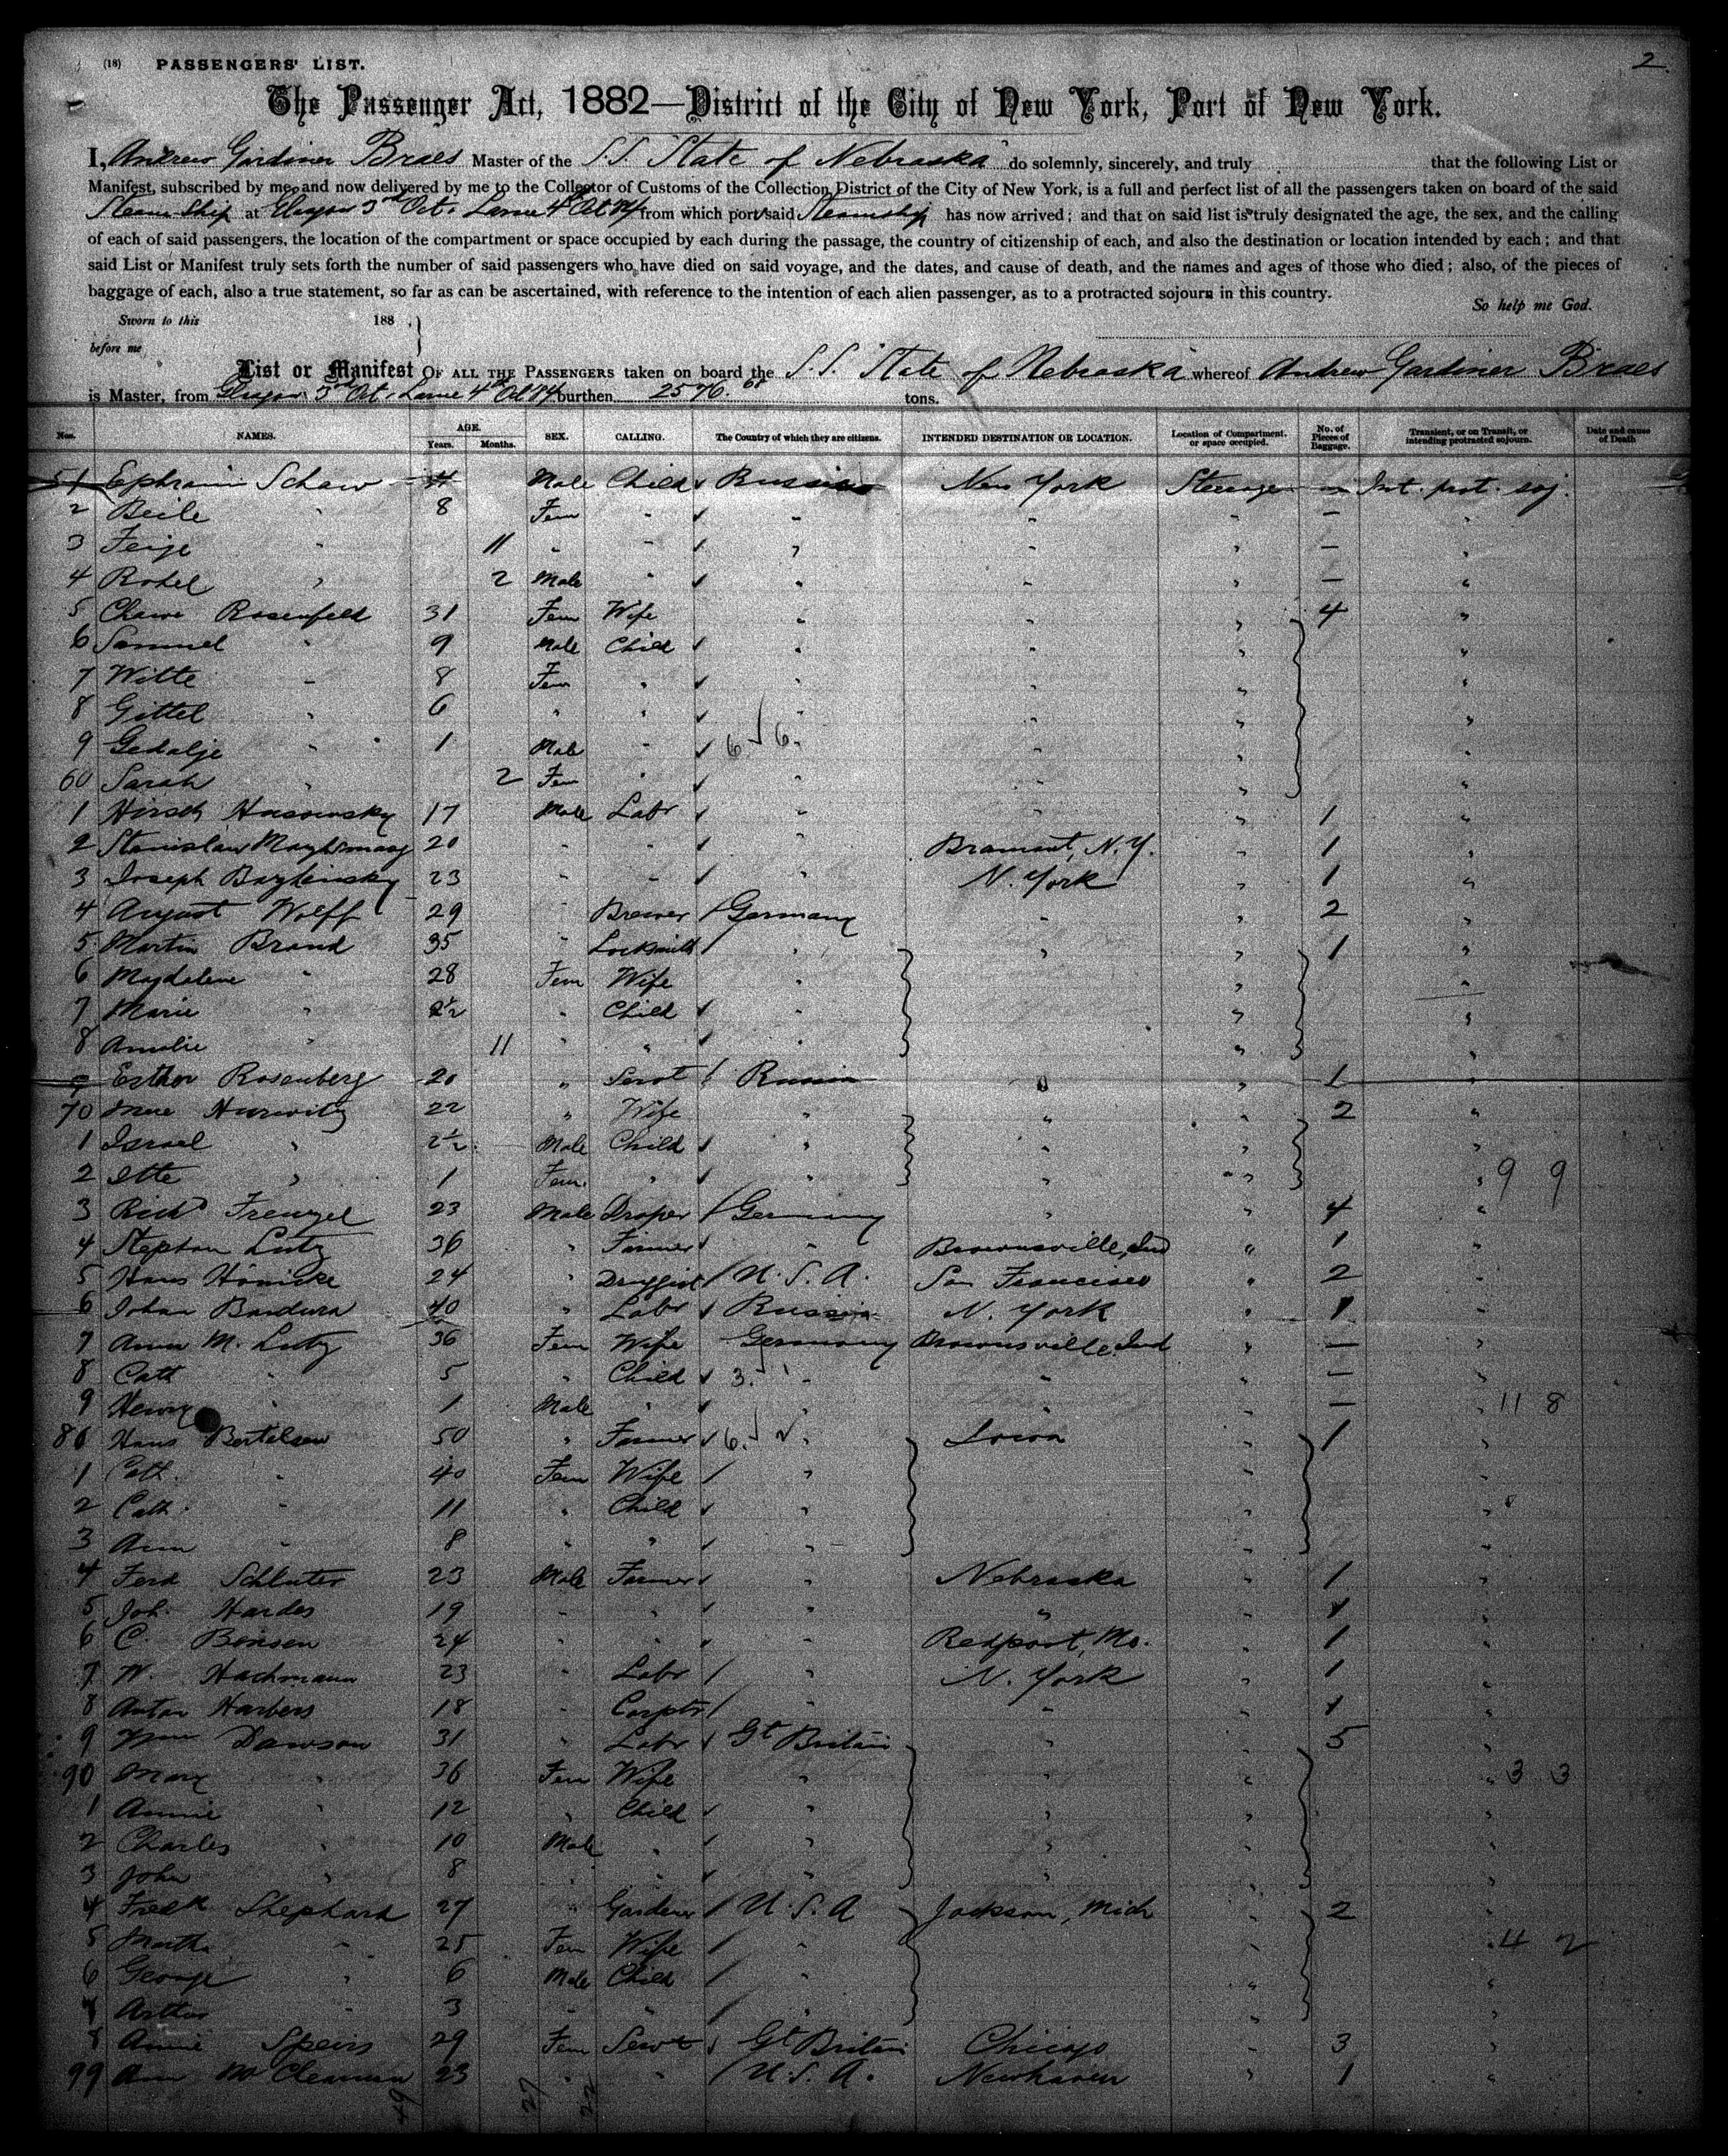 2
(18) PASSENGERS' LIST.
The Passenger Act, 1882—District of the City of New York, Port of New York.
I, Andrew Gardiner Braes Master of the S.S. "State of Nebraska" do solemnly, sincerely, and truly that the following List or
Manifest, subscribed by me, and now delivered by me to the Collector of Customs of the Collection District of the City of New York, is a full and perfect list of all the passengers taken on board of the said
Steam Ship at Glasgow 3rd Oct. Larne 4th Oct from which port said Steamship has now arrived; and that on said list is truly designated the age, the sex, and the calling
of each of said passengers, the location of the compartment or space occupied by each during the passage, the country of citizenship of each, and also the destination or location intended by each; and that
said List or Manifest truly sets forth the number of said passengers who have died on said voyage, and the dates, and cause of death, and the names and ages of those who died; also, of the pieces of
baggage of each, also a true statement, so far as can be ascertained, with reference to the intention of each alien passenger, as to a protracted sojourn in this country.
So help me God.
Sworn to this 188 .
before me
List or Manifest OF ALL THE PASSENGERS taken on board the S.S. State of Nebraska whereof Andrew Gardiner Braes
is Master, from Glasgow 3rd Oct. Larne 4th Oct burthen 2576.68 tons.
Nos. NAMES. AGE. Years. Months. SEX. CALLING. The Country of which they are citizens. INTENDED DESTINATION OR LOCATION. Location of Compartment, or space occupied. No. of Pieces of Baggage. Transient, or on Transit, or intending protracted sojourn. Date and cause of Death
51 Ephraim Schaw 4 Male Child Russia New York Steerage — Int. prot. soj.
2 Beile " 8 Fem " " " " — "
3 Feige " 11 " " " " " — "
4 Rohel " 2 Male " " " " — "
5 Chawe Rosenfeld 31 Fem Wife " " " 4 "
6 Samuel " 9 Male Child " " " "
7 Witte " 8 Fem " " " " "
8 Gittel " 6 " " " " " "
9 Gedalje " 1 Male " 6 6 " "
60 Sarah " 2 Fem " " " " "
1 Hirsch 17 Male Labr " " " 1 "
2 Stanislaw 20 " " " N.Y. " 1 "
3 Joseph 23 " " " N. York " 1 "
4 August Wolff 29 " Brewer Germany " " 2 "
5 Martin Brand 35 " Locksmith " " " 1 "
6 Magdalene " 28 Fem Wife " " "
7 Marie " 2½ " Child " " "
8 Amalie " 11 " " " " "
9 Esther Rosenberg 20 " Servt Russia " " 1 "
70 Hurwitz 22 " Wife " " " 2 "
1 Israel " 2½ Male Child " " " "
2 Itte " 1 Fem. " " " " " 9 9
3 Richd Frenzel 23 Male Draper Germany " " 4 "
4 Stephan Lutz 36 " Farmer " Brownsville, Ind " 1 "
5 Hans Hönicke 24 " Druggist U.S.A. San Francisco " 2 "
6 Johan Bandura 40 " Labr Russia N. York " 1 "
7 Anna M. Lutz 36 Fem Wife Germany Brownsville Ind " — "
8 Cath " 5 " Child 3 " " " — "
9 Henry " 1 Male " " " " — " 11 8
80 Hans Bertelsen 50 " Farmer 6 " Iowa " 1 "
1 Cath. " 40 Fem Wife " " "
2 Cath. " 11 " Child " " "
3 Ann " 8 " " " " "
4 Ferd Schluter 23 Male Farmer " Nebraska " 1 "
5 Joh. Hardes 19 " " " " " 1 "
6 C. Bensen 24 " " " Mo. " 1 "
7 W. Hachmann 23 " Labr " N. York " 1 "
8 Anton Harbers 18 " Carptr " " " 1 "
9 Wm Dawson 31 " Labr Gt Britain " " 5 "
90 Mary " 36 Fem Wife " " " " 3 3
1 Annie " 12 " Child " " " "
2 Charles " 10 Male " " " " "
3 John " 8 " " " " " "
4 Fredk Shephard 27 " Gardener U.S.A Jackson, Mich " 2 "
5 Martha " 25 Fem Wife " " " 4 2
6 George " 6 Male Child " " "
7 Arthur " 3 " " " " "
8 Annie Speirs 29 Fem Servt Gt Britain Chicago " 3 "
99 Ann 23 " " U.S.A. Newhaven " 1 "